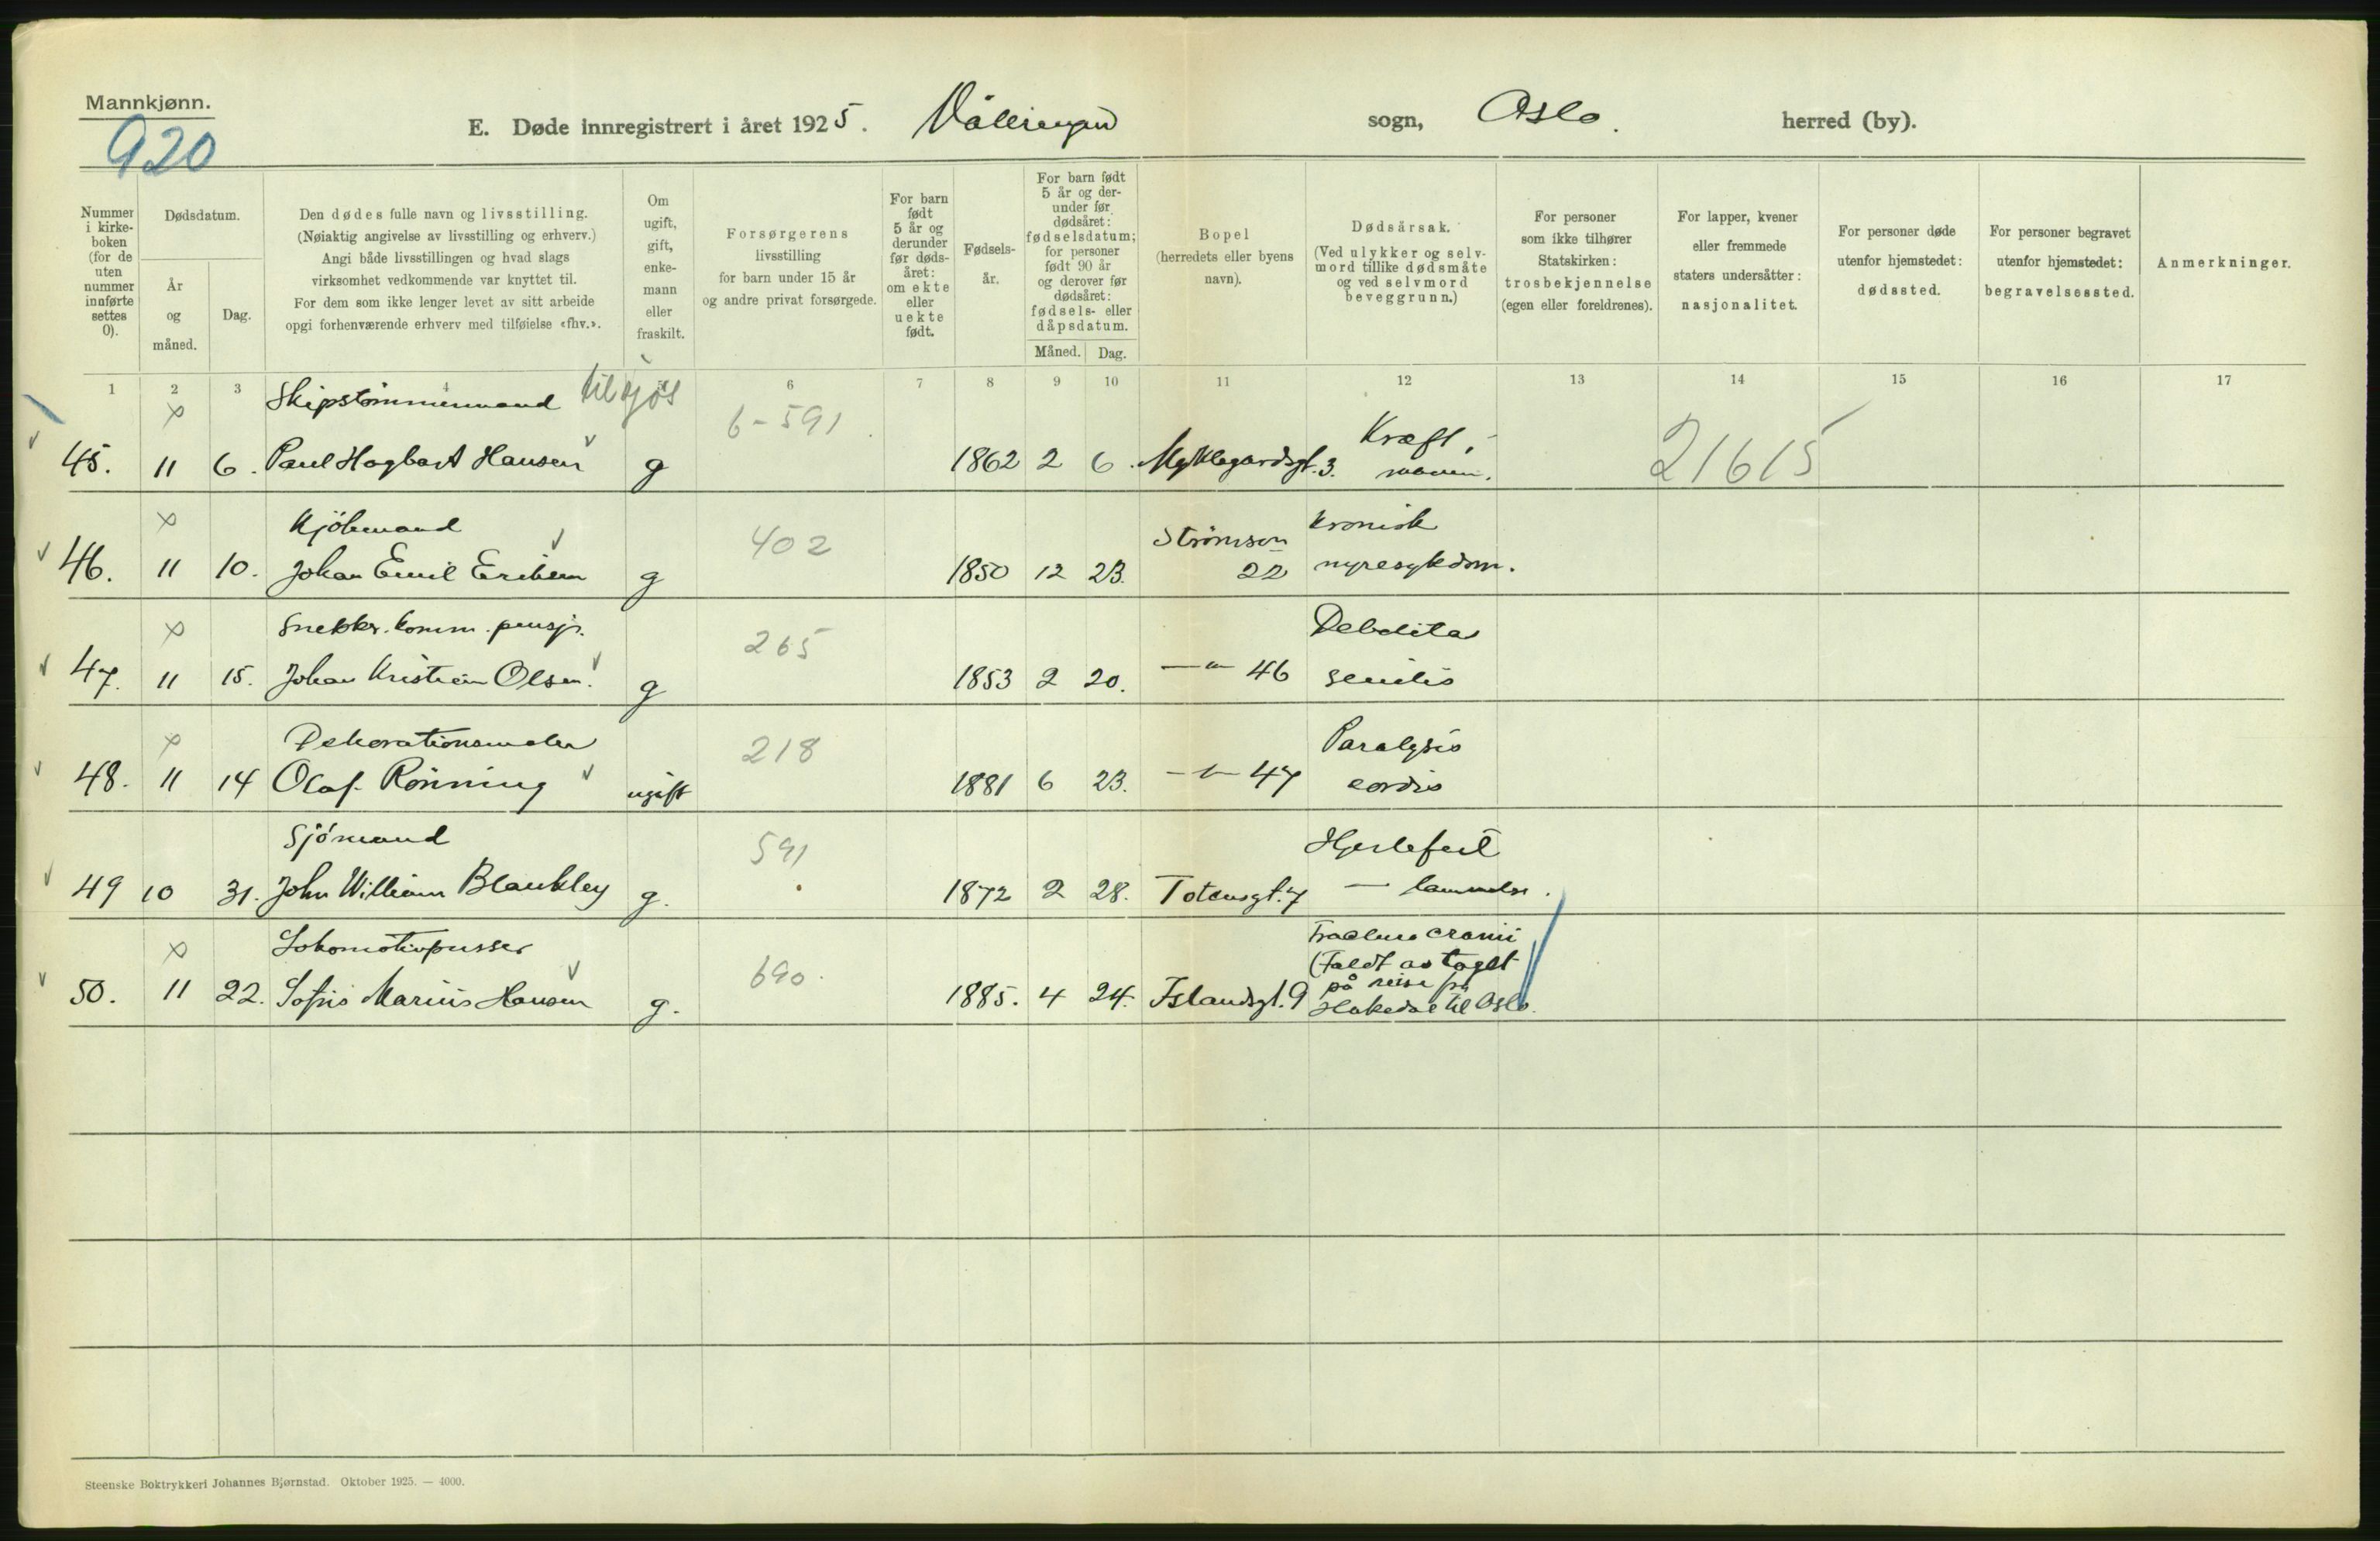 Mannkjønn.
920
E. Døde innregistrert i året 1925. Vålerengen sogn, Oslo. herred (by).
Nummer i kirke-boken (for de uten nummer innførte settes 0).
Dødsdatum.
År og måned.
Dag.
Den dødes fulle navn og livsstilling.
(Nøiaktig angivelse av livsstilling og erhverv.)
Angi både livsstillingen og hvad slags
virksomhet vedkommende var knyttet til.
For dem som ikke lenger levet av sitt arbeide
opgi forhenværende erhverv med tilføielse «fhv.».
Om ugift, gift, enke-mann eller fraskilt.
Forsørgerens
livsstilling
for barn under 15 år
og andre privat forsørgede.
For barn født 5 år og derunder før døds-året: om ekte eller uekte født.
Fødsels-år.
For barn født 5 år og der-under før dødsåret: fødselsdatum; for personer født 90 år og derover før dødsåret: fødsels- eller dåpsdatum.
Måned. Dag.
Bopel
(herredets eller byens
navn).
Dødsårsak.
(Ved ulykker og selv-
mord tillike dødsmåte
og ved selvmord
beveggrunn.)
For personer
som ikke tilhører
Statskirken:
trosbekjennelse
(egen eller foreldrenes).
For lapper, kvener
eller fremmede
staters undersåtter:
nasjonalitet.
For personer døde
utenfor hjemstedet:
dødssted.
For personer begravet
utenfor hjemstedet:
begravelsessted.
Anmerkninger.
1 2 3 4 6 7 8 9 10 11 12 13 14 15 16 17
Skipstømmermand til sjøs
6-591
45. 11 6. Paul Hagbart Hansen g 1862 2 6. Myklegardsgt. 3. Kræft, maven. 21615
Kjøbmand
402
46. 11 10. Johan Emil Eriksen g 1850 12 23. Strømsvn 22 Kronisk nyresykdom.
Snekker. komm. pensj.
265
47. 11 15. Johan Kristian Olsen. g 1853 2 20. —"— 46 Debilitas senilis
Dekorationsmaler
218
48. 11 14 Olaf Rønning ugift 1881 6 23. —"— 47 Paralysis cordis
Sjømand
591
49 10 31. John William Blankley g. 1872 2 28. Totensgt. 7 Hjertefeil — lammelse.
Lokomotivpusser
690.
50. 11 22. Sofus Marius Hansen g. 1885. 4 24. Islandsgt. 9 Fractura cranii
(Faldt av toget
på reise fra
Hakedal til Oslo.
Steenske Boktrykkeri Johannes Bjørnstad. Oktober 1925. — 4000.